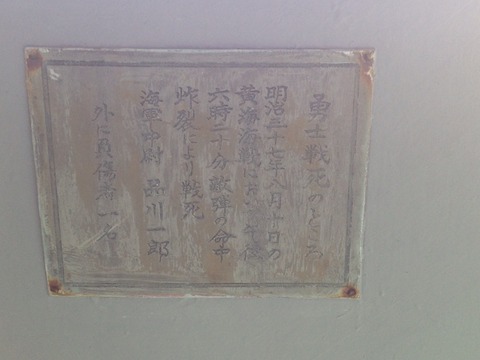 勇士戦死のところ
明治三十七年八月十日の
黄海海戦に於て午後
六時二十分敵弾の命中
炸裂により戦死
海軍中尉 品川一郎
外に負傷者一名